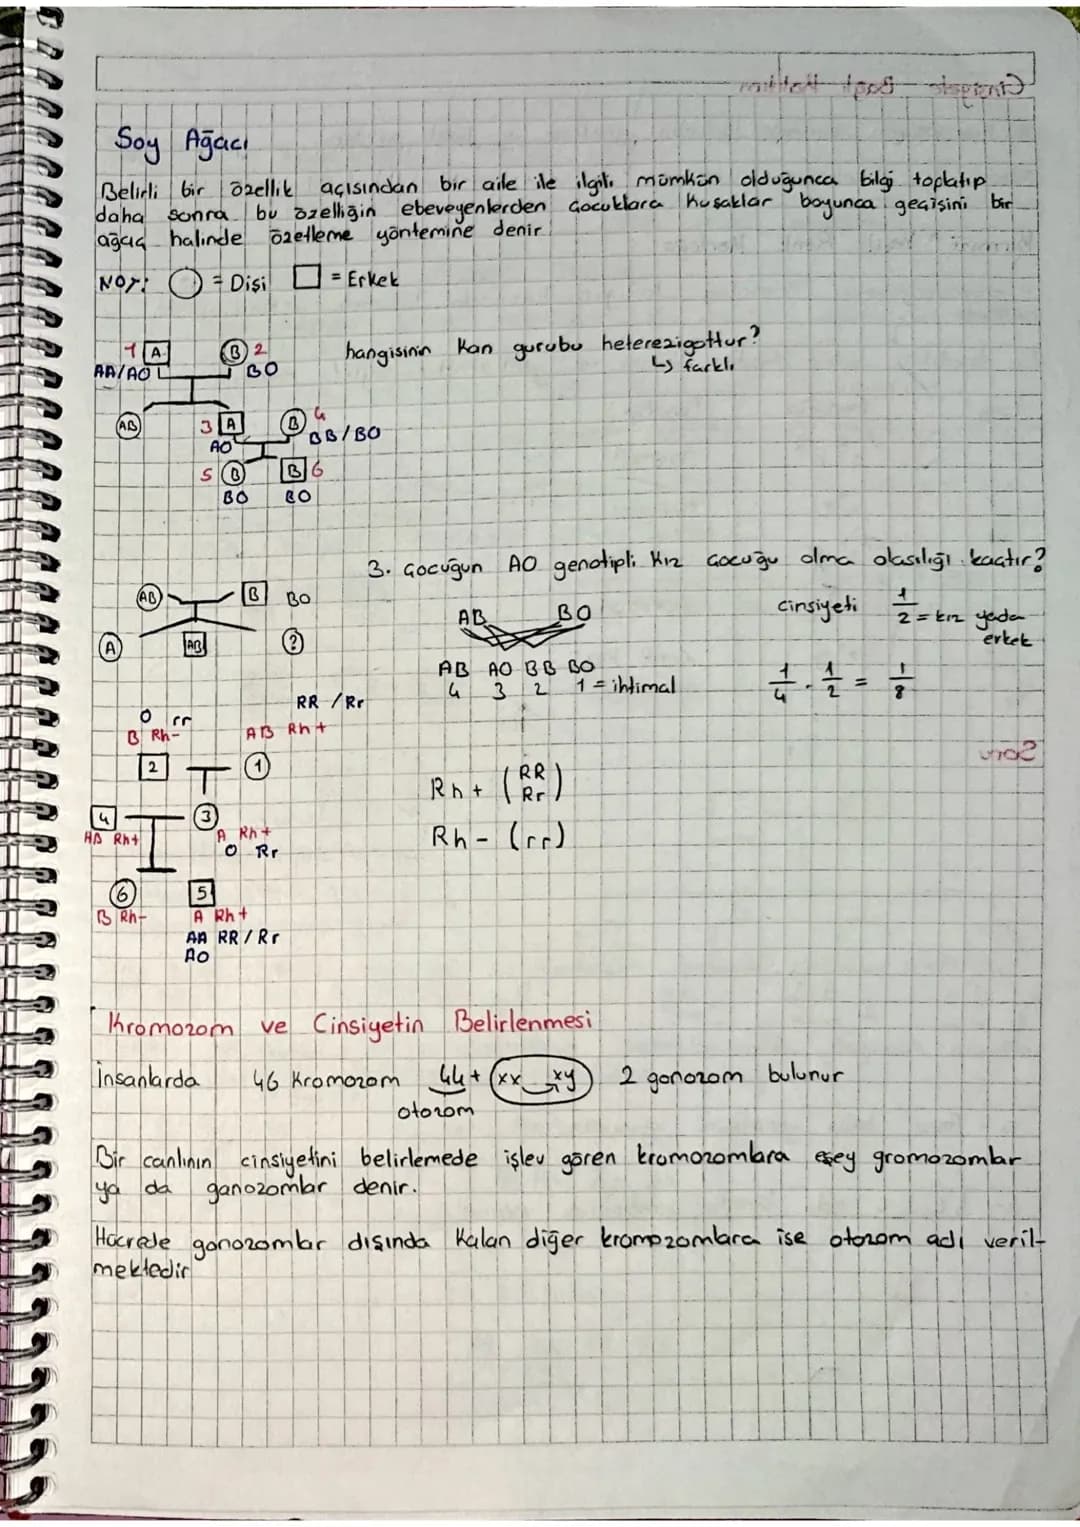 Soy Ağacı
Belirli bir özellik açısından bir aile ile ilgili mümkün olduğunca bilgi toplatıp
daha sonra bu özelliğin ebeveyenlerden çocuklara kuşaklar boyunca geçişini bir
ağaç halinde özetleme yöntemine denir.
NOT: = Dişi = Erkek
1 A B 2 hangisinin kan gurubu heterezigottur?
AA/AO BO ↳ farklı
AB 3 A B 4
AO BB/BO
5 B B 6
BO BO
3. çocuğun AO genotipli kız çocuğu olma olasılığı kaçtır?
AB B BO AB BO cinsiyeti 1/2 = kız yada
erkek
A AB ?
AB AO BB BO
4 3 2 1 = ihtimal 1/4 . 1/2 = 1/8
RR / Rr
O rr
B Rh- AB Rh+
2 1
Rh+ (RR Rr)
4 3
AB Rh+ A Rh+ Rh- (rr)
O Rr
6 5
B Rh- A Rh+
AA RR / Rr
AO
Kromozom ve Cinsiyetin Belirlenmesi
İnsanlarda 46 Kromozom 44+ (xx xy) 2 gonozom bulunur
otozom
Bir canlının cinsiyetini belirlemede işlev gören kromozomlara eşey gromozomlar
ya da ganozomlar denir.
Hücrede gonozomlar dışında kalan diğer kromozomlara ise otozom adı veril-
mektedir